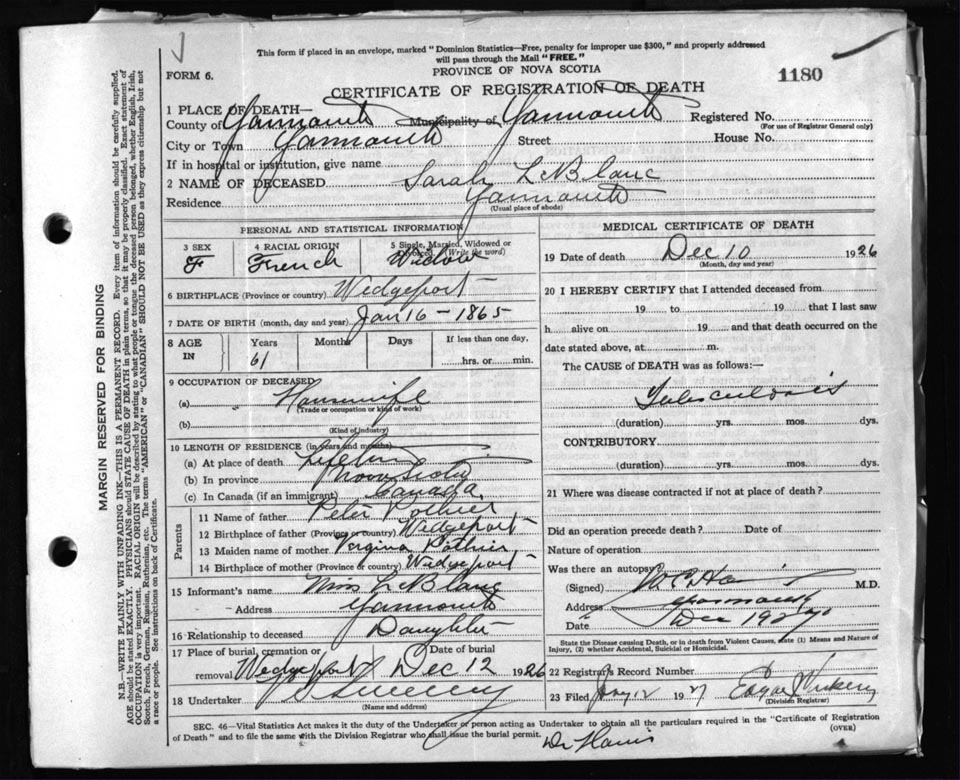 This form if placed in an envelope, marked "Dominion Statistics—Free, penalty for improper use $300," and properly addressed
will pass through the Mail "FREE."
PROVINCE OF NOVA SCOTIA
FORM 6.
1180
CERTIFICATE OF REGISTRATION OF DEATH
1 PLACE OF DEATH—
County of Yarmouth Municipality of Yarmouth Registered No.
(For use of Registrar General only)
City or Town Yarmouth Street House No.
If in hospital or institution, give name
2 NAME OF DECEASED Sarah LeBlanc
Residence Yarmouth
(Usual place of abode)
PERSONAL AND STATISTICAL INFORMATION
3 SEX F
4 RACIAL ORIGIN French
5 Single, Married, Widowed or Divorced (Write the word) Widow
6 BIRTHPLACE (Province or country) Wedgeport
7 DATE OF BIRTH (month, day and year) Jan 16 - 1865
8 AGE IN Years 61 Months Days If less than one day, hrs. or min.
9 OCCUPATION OF DECEASED
(a) Housewife
(Trade or occupation or kind of work)
(b)
(Kind of industry)
10 LENGTH OF RESIDENCE (in years and months)
(a) At place of death Lifetime
(b) In province Nova Scotia
(c) In Canada (if an immigrant) Canada
Parents
11 Name of father Peter Pothier
12 Birthplace of father (Province or country) Wedgeport
13 Maiden name of mother Vergina Pothier
14 Birthplace of mother (Province or country) Wedgeport
15 Informant's name Miss LeBlanc
Address Yarmouth
16 Relationship to deceased Daughter
17 Place of burial, cremation or removal Wedgeport Date of burial Dec 12 1926
18 Undertaker Sweeny
(Name and address)
MEDICAL CERTIFICATE OF DEATH
19 Date of death Dec 10 1926
(Month, day and year)
20 I HEREBY CERTIFY that I attended deceased from
19 to 19 that I last saw
h alive on 19 and that death occurred on the
date stated above, at m.
The CAUSE of DEATH was as follows:—
Tuberculosis
(duration) yrs. mos. dys.
CONTRIBUTORY
(duration) yrs. mos. dys.
21 Where was disease contracted if not at place of death?
Did an operation precede death? Date of
Nature of operation
Was there an autopsy
(Signed) M.D.
Address Yarmouth
Date Dec
State the Disease causing Death, or in death from Violent Causes, state (1) Means and Nature of
Injury, (2) whether Accidental, Suicidal or Homicidal.
22 Registrar's Record Number
23 Filed Jany 12 1927
(Division Registrar)
SEC. 46—Vital Statistics Act makes it the duty of the Undertaker or person acting as Undertaker to obtain all the particulars required in the "Certificate of Registration
of Death" and to file the same with the Division Registrar who shall issue the burial permit.
(OVER)
Dr Harris
MARGIN RESERVED FOR BINDING
N.B.—WRITE PLAINLY WITH UNFADING INK—THIS IS A PERMANENT RECORD. Every item of information should be carefully supplied.
AGE should be stated EXACTLY. PHYSICIANS should STATE CAUSE OF DEATH in plain terms, so that it may be properly classified. Exact statement of
OCCUPATION is very important. RACIAL ORIGIN will be described by stating to what people or tongue the deceased person belonged, whether English, Irish,
Scotch, French, German, Russian, Ruthenian, etc. The terms "AMERICAN" or "CANADIAN" SHOULD NOT BE USED as they express citizenship but not
a race or people. See instructions on back of Certificate.